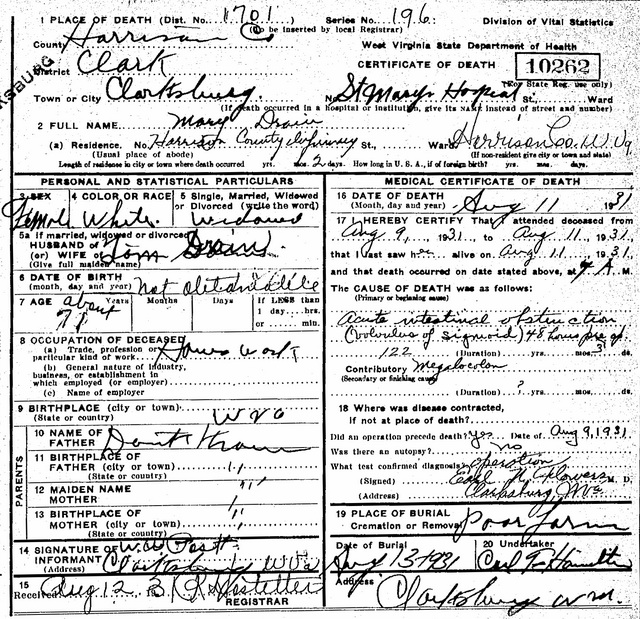 1 PLACE OF DEATH (Dist. No. 1701 Series No. 196
(To be inserted by local Registrar)
Division of Vital Statistics
County Harrison Co
West Virginia State Department of Health
District Clark
CERTIFICATE OF DEATH
10262
(For State Reg. use only)
KSBURG
Town or City Clarksburg. No. St Marys Hospital St., Ward
(If death occurred in a hospital or institution, give its NAME instead of street and number)
2 FULL NAME Mary Drain
(a) Residence. No. Harrison County Infirmary St., Ward, Harrison Co. W. Va
(Usual place of abode) (If non-resident give city or town and state)
Length of residence in city or town where death occurred yrs. mos. 2 days. How long in U. S. A., if of foreign birth? yrs. mos. days.
PERSONAL AND STATISTICAL PARTICULARS
3 SEX
Female
4 COLOR OR RACE
White
5 Single, Married, Widowed or Divorced (write the word)
Widowed
5a If married, widowed or divorced
HUSBAND of
(or) WIFE of Tom Drain
(Give full maiden name)
6 DATE OF BIRTH
(month, day and year) not obtainable
7 AGE about Years Months Days If LESS than
71
1 day....hrs.
or......min.
8 OCCUPATION OF DECEASED
(a) Trade, profession or
particular kind of work House Work
(b) General nature of industry,
business, or establishment in
which employed (or employer)
(c) Name of employer
9 BIRTHPLACE (city or town)
(State or country) W Va
PARENTS
10 NAME OF
FATHER
11 BIRTHPLACE OF
FATHER (city or town) "
(State or country)
12 MAIDEN NAME
MOTHER "
13 BIRTHPLACE OF
MOTHER (city or town) "
(State or country)
14 SIGNATURE OF
INFORMANT W. W. Post
(Address) Clarksburg W Va
15
Received Aug 12 3
REGISTRAR
MEDICAL CERTIFICATE OF DEATH
16 DATE OF DEATH
(Month, day and year) Aug 11 1931
17 I HEREBY CERTIFY That I attended deceased from
Aug 9, 1931, to Aug 11, 1931
that I last saw her alive on Aug 11, 1931
and that death occurred on date stated above, at A. M.
The CAUSE OF DEATH was as follows:
(Primary or beginning cause)
Acute intestinal obstruction
(volvulus of sigmoid) 48 hours pre op
122 (Duration) yrs. mos. 3 ds.
Contributory Megalocolon
(Secondary or finishing cause)
(Duration) ? yrs. mos. ds.
18 Where was disease contracted,
if not at place of death?
Did an operation precede death? yes Date of Aug 9, 1931
Was there an autopsy? no
What test confirmed diagnosis? operation
(Signed) Earl N. Flowers M. D.
(Address) Clarksburg, W Va
19 PLACE OF BURIAL
Cremation or Removal Poor Farm
Date of Burial
Aug 13 1931
20 Undertaker
Carl F. Hamilton
Address
Clarksburg W Va.